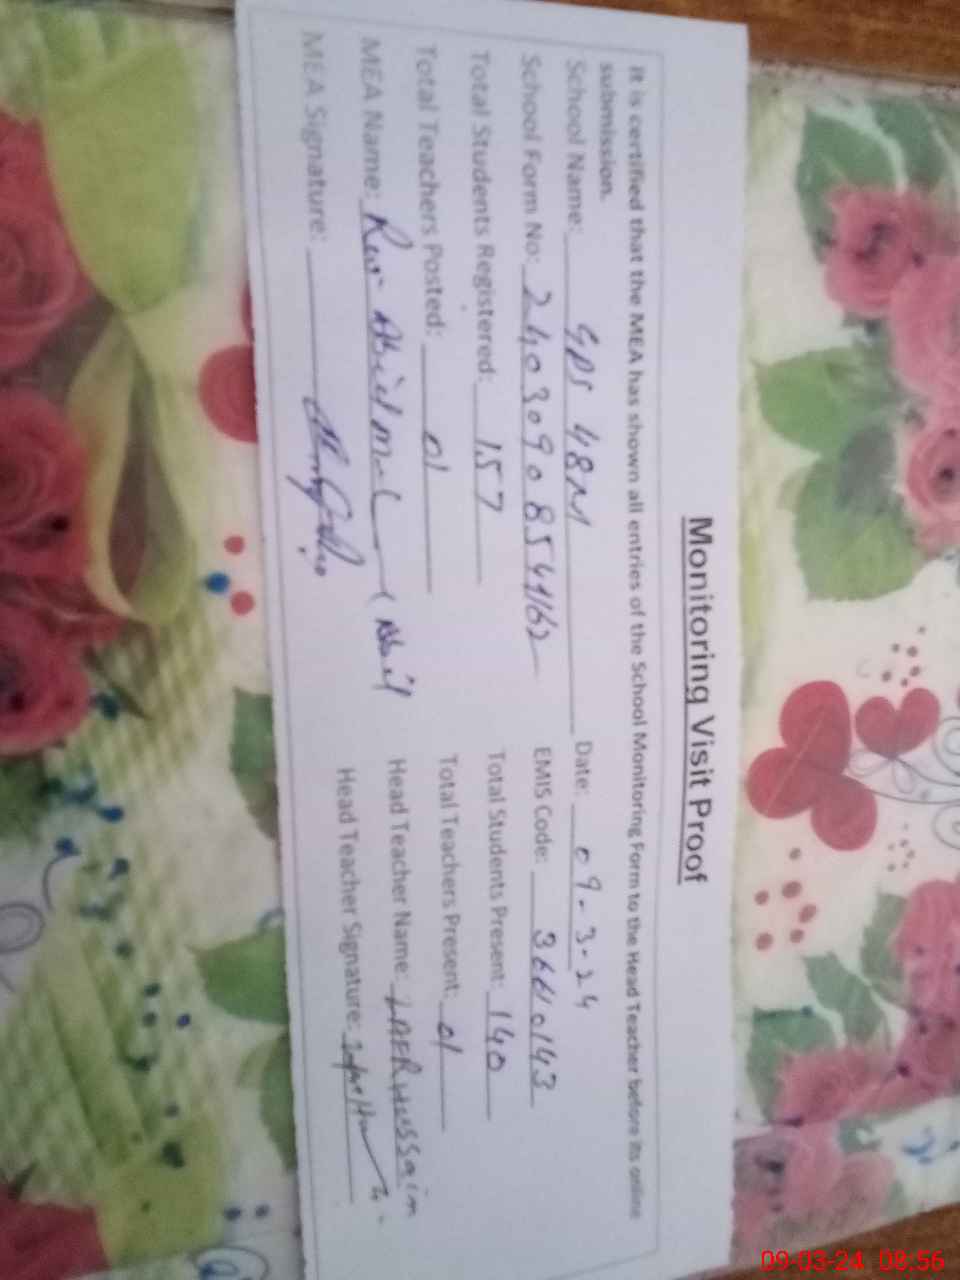 Monitoring Visit Proof
It is certified that the MEA has shown all entries of the School Monitoring Form to the Head Teacher before its online
submission.
School Name: GPS 48M Date: 09-3-24
School Form No: 2403090854162 EMIS Code:
Total Students Registered: 157 Total Students Present: 140
Total Teachers Posted: 01 Total Teachers Present: 01
MEA Name: Head Teacher Name: ZAFR HUSSain
MEA Signature: Head Teacher Signature:
09-03-24 08:56